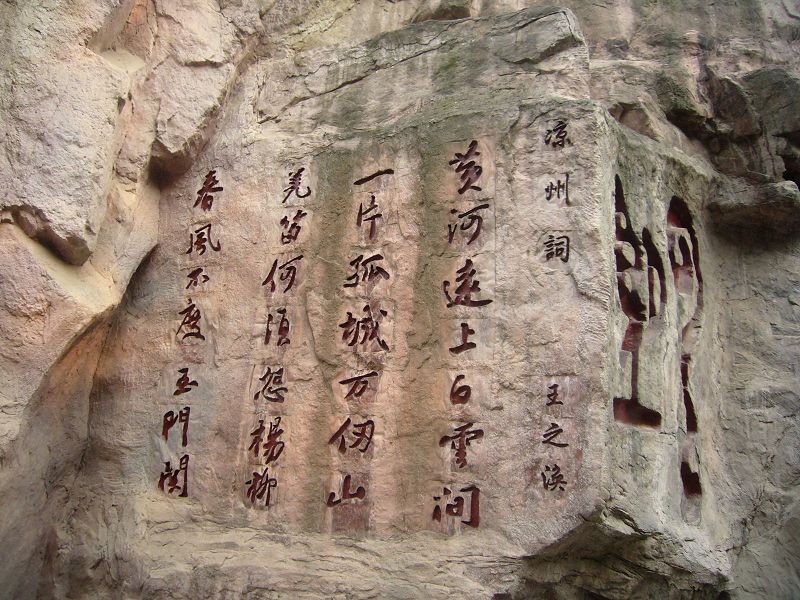 凉州詞
王之涣
黄河遠上白雲间
一片孤城万仞山
羌笛何須怨楊柳
春風不度玉門関